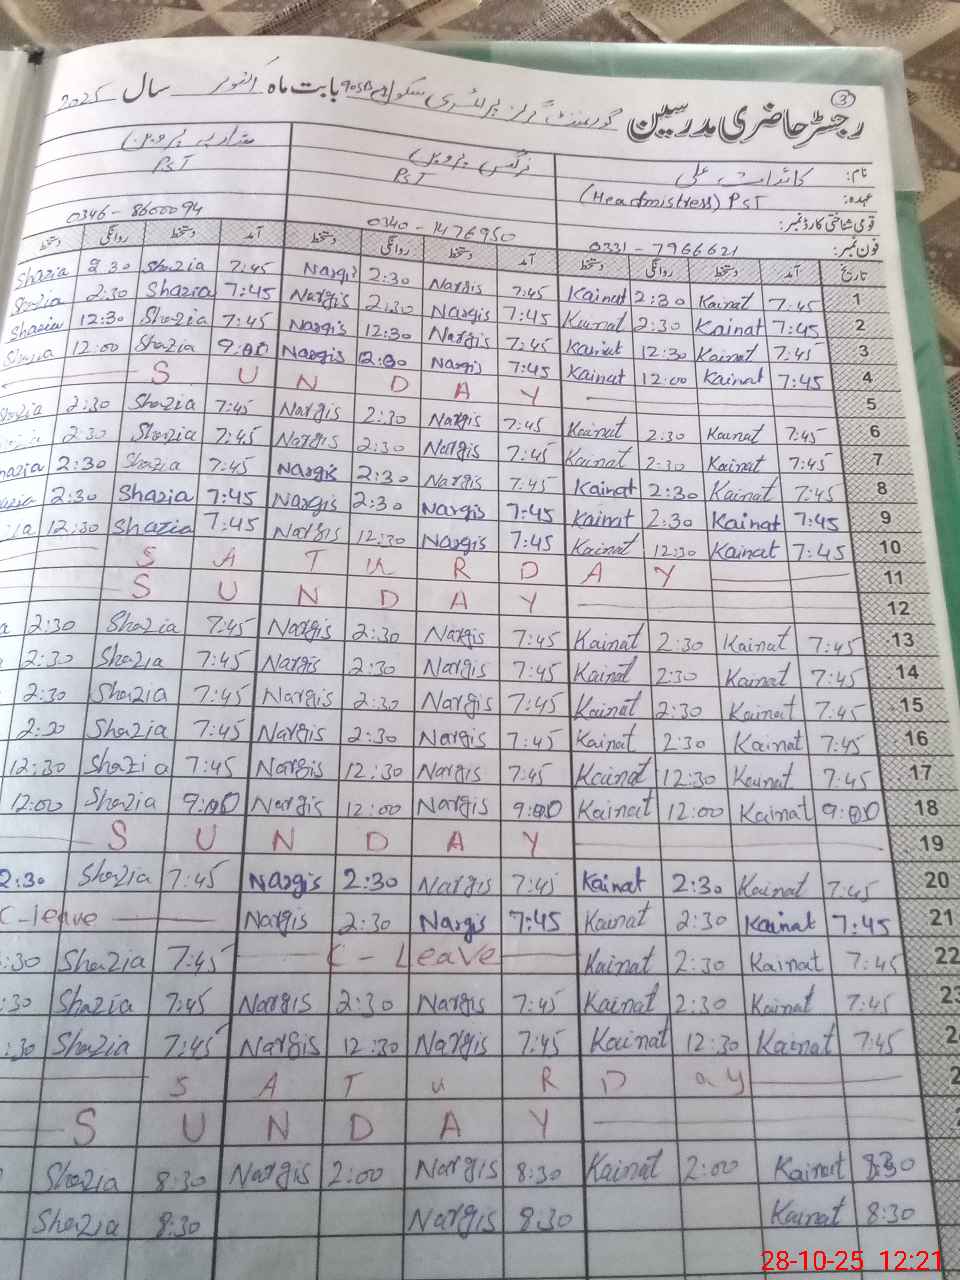 3
رجسٹر حاضری مدرسین گورنمنٹ گرلز پرائمری سکول بابت ماہ اکتوبر سال 2025
نام: کائنات علی نرگس پروین پروین
عہدہ: (Headmistress) PST PST PST
قومی شناختی کارڈ نمبر:
فون نمبر: 0331-7966621 0340-1476950 0346-8600094
تاریخ آمد دستخط روانگی دستخط آمد دستخط روانگی دستخط آمد دستخط روانگی دستخط
Shazia 2:30 Shazia 7:45 Nargis 2:30 Nargis 7:45 Kainat 2:30 Kainat 7:45 1
Shazia 2:30 Shazia 7:45 Nargis 2:30 Nargis 7:45 Kainat 2:30 Kainat 7:45 2
Shazia 12:30 Shazia 7:45 Nargis 12:30 Nargis 7:45 Kainat 12:30 Kainat 7:45 3
12:00 Shazia 9:00 Nargis Nargis 7:45 Kainat 12:00 Kainat 7:45 4
S U N D A Y 5
2:30 Shazia 7:45 Nargis 2:30 Nargis 7:45 Kainat 2:30 Kainat 7:45 6
2:30 Shazia 7:45 Nargis 2:30 Nargis 7:45 Kainat 2:30 Kainat 7:45 7
2:30 Shazia 7:45 Nargis 2:30 Nargis 7:45 Kainat 2:30 Kainat 7:45 8
2:30 Shazia 7:45 Nargis 2:30 Nargis 7:45 Kainat 2:30 Kainat 7:45 9
12:30 Shazia 7:45 Nargis 12:30 Nargis 7:45 Kainat 12:30 Kainat 7:45 10
S A T U R D A Y 11
S U N D A Y 12
2:30 Shazia 7:45 Nargis 2:30 Nargis 7:45 Kainat 2:30 Kainat 7:45 13
2:30 Shazia 7:45 Nargis 2:30 Nargis 7:45 Kainat 2:30 Kainat 7:45 14
2:30 Shazia 7:45 Nargis 2:30 Nargis 7:45 Kainat 2:30 Kainat 7:45 15
2:30 Shazia 7:45 Nargis 2:30 Nargis 7:45 Kainat 2:30 Kainat 7:45 16
12:30 Shazia 7:45 Nargis 12:30 Nargis 7:45 Kainat 12:30 Kainat 7:45 17
12:00 Shazia 9:00 Nargis 12:00 Nargis 9:00 Kainat 12:00 Kainat 9:00 18
S U N D A Y 19
2:30 Shazia 7:45 Nargis 2:30 Nargis 7:45 Kainat 2:30 Kainat 7:45 20
C-leave Nargis 2:30 Nargis 7:45 Kainat 2:30 Kainat 7:45 21
:30 Shazia 7:45 C-Leave Kainat 2:30 Kainat 7:45 22
:30 Shazia 7:45 Nargis 2:30 Nargis 7:45 Kainat 2:30 Kainat 7:45 23
:30 Shazia 7:45 Nargis 12:30 Nargis 7:45 Kainat 12:30 Kainat 7:45 2
S A T u R D a y 2
S U N D A Y
Shazia 8:30 Nargis 2:00 Nargis 8:30 Kainat 2:00 Kainat 8:30
Shazia 8:30 Nargis 8:30 Kainat 8:30
28-10-25 12:21